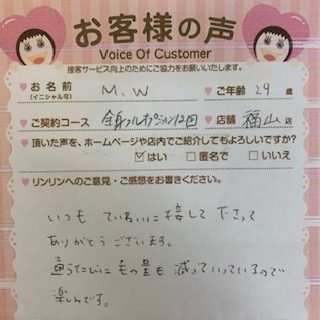 お客様の声
Voice Of Customer
接客サービス向上のためにご協力をお願いいたします。
お名前 (イニシャル可) M.W ご年齢 29 歳
ご契約コース 全身フルオプション12回 店舗 福山 店
頂いた声を、ホームページや店内でご紹介してもよろしいですか?
☑はい □匿名で □いいえ
リンリンへのご意見・ご感想をお書きください。
いつも ていねいに 接して 下さって
ありがとう ございます。
通うたびに 毛の量も 減っていっているので
楽しみです。